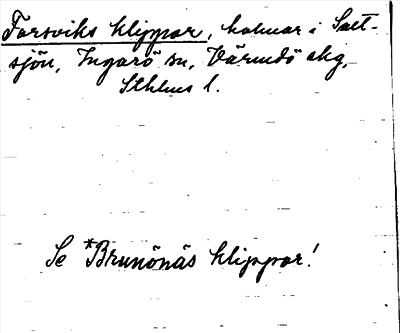 Farsviks klippor, holmar i Salt-
sjön, Ingarö sn, Värmdö skg,
Sthlms l.
Se *Brunönäs klippor!